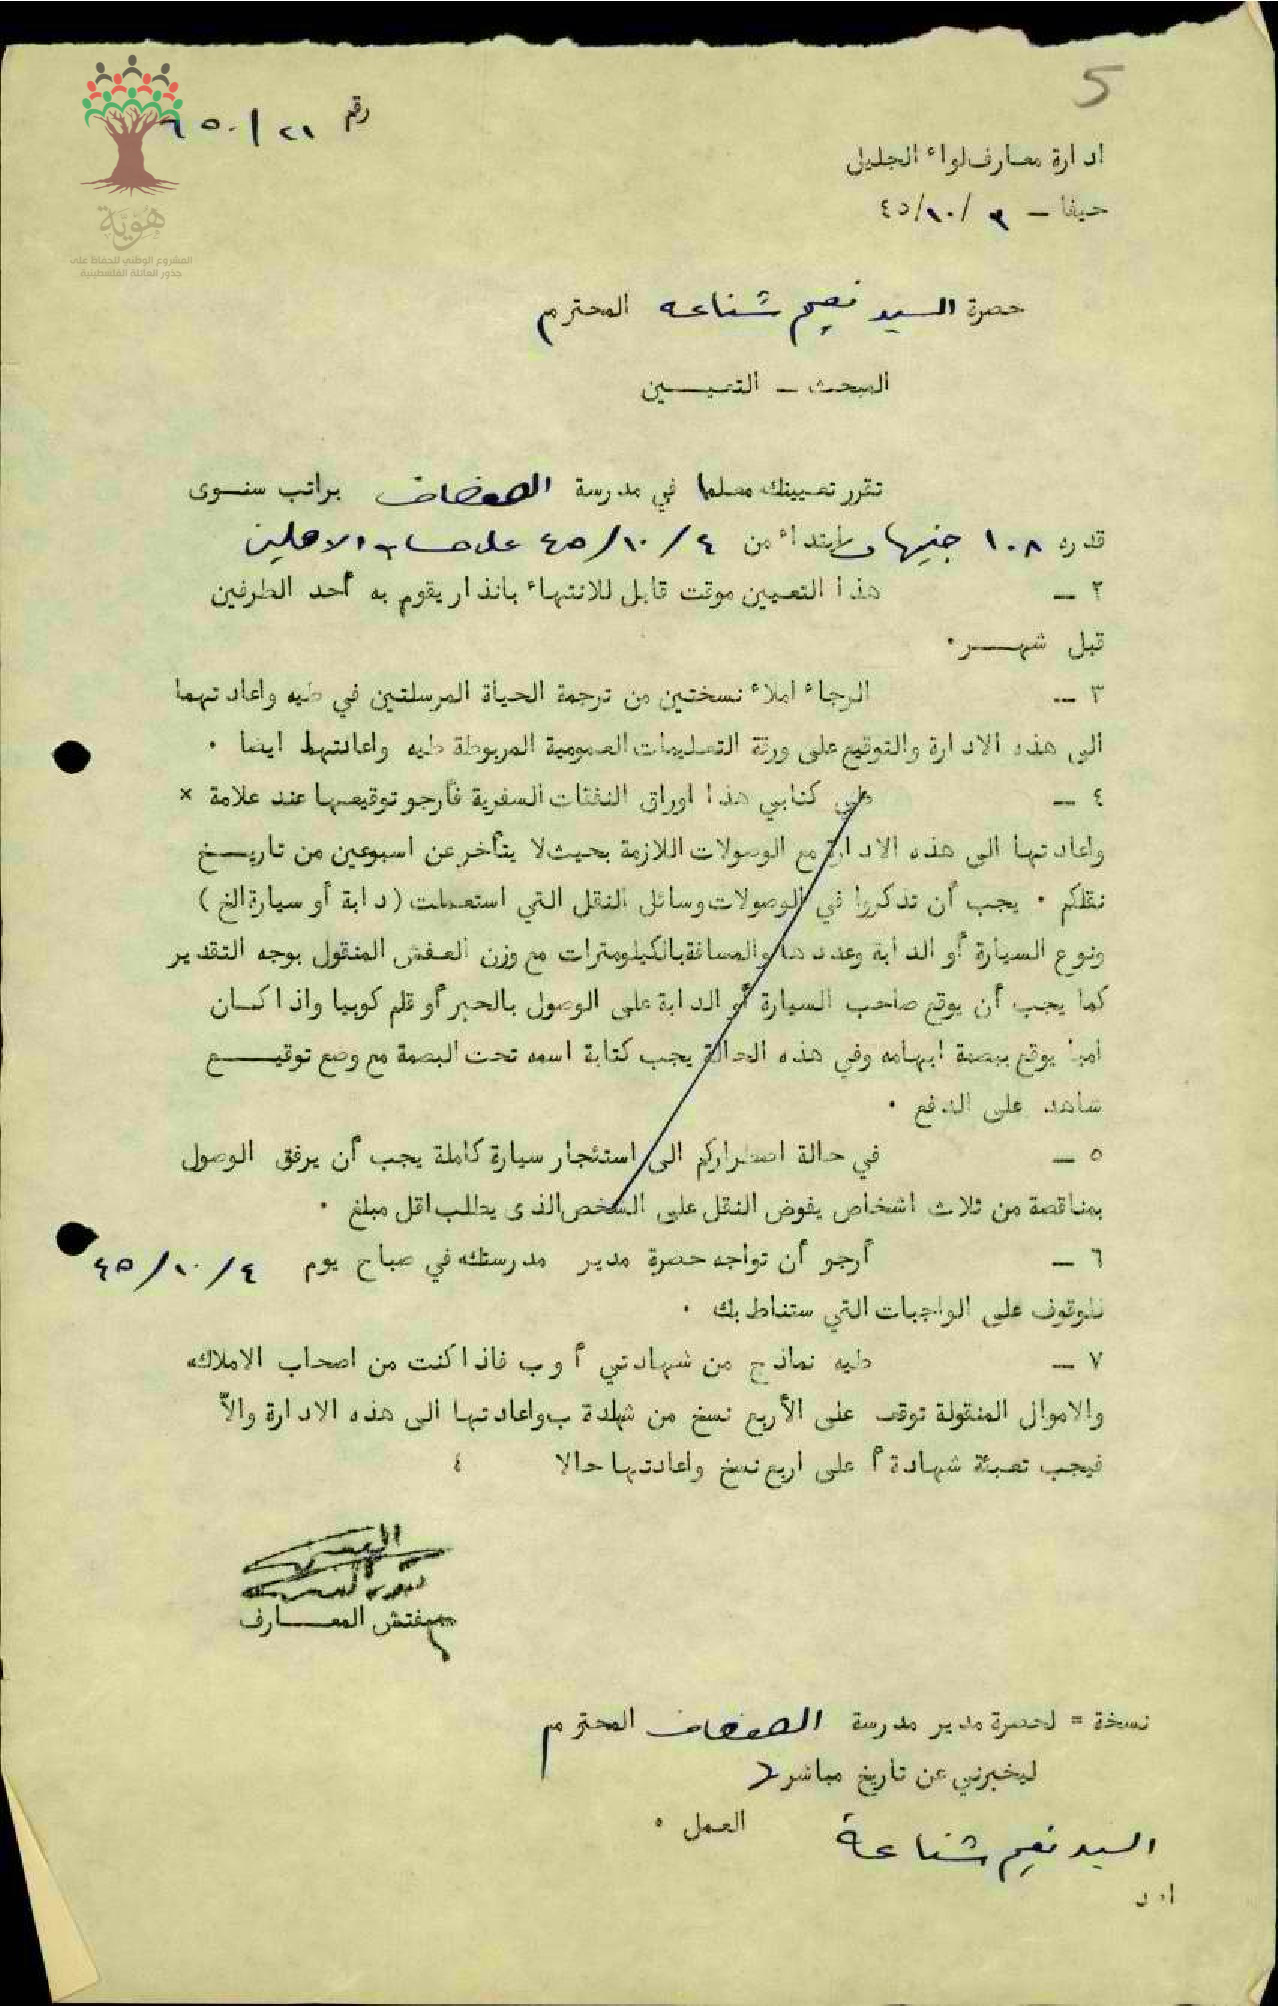 5
رقم ٢١/٦٥٠
ادارة معارف لواء الجليل
حيفا – ٣/١٠/٤٥
هُوِيَّة
المشروع الوطني للحفاظ على
جذور العائلة الفلسطينية
حضرة السيد نعيم شناعه المحترم
المبحث – التعيــــين
تقرر تعيينك معلما في مدرسة الصفصاف براتب سنــوى
قدره ١٠٨ جنيهات ابتداء من ٤/١٠/٤٥ على حساب الاهلين
٢ – هذا التعيين موقت قابل للانتهاء بانذار يقوم به أحد الطرفين
قبل شهــر ٠
٣ – الرجاء املاء نسختين من ترجمة الحياة المرسلتين في طيه واعادتهما
الى هذه الادارة والتوقيع على ورقة التعليمات العمومية المربوطة طيه واعادتها ايضا ٠
٤ – طي كتابي هذا اوراق النفقات السفرية فأرجو توقيعها عند علامة ×
واعادتها الى هذه الادارة مع الوصولات اللازمة بحيث لا يتأخر عن اسبوعين من تاريــخ
نقلكم ٠ يجب أن تذكروا في الوصولات وسائل النقل التي استعملت (دابة أو سيارة الخ)
ونوع السيارة أو الدابة وعددها والمسافة بالكيلومترات مع وزن العفش المنقول بوجه التقدير
كما يجب أن يوقع صاحب السيارة أو الدابة على الوصول بالحبر أو قلم كوبيا واذا كــان
اميا يوقع ببصمة ابهامه وفي هذه الحالة يجب كتابة اسمه تحت البصمة مع وضع توقيــــع
شاهد على الدفع ٠
٥ – في حالة اضطراركم الى استئجار سيارة كاملة يجب أن يرفق الوصول
بمناقصة من ثلاث اشخاص يفوض النقل على الشخص الذى يطلب اقل مبلغ ٠
٦ – أرجو أن تواجه حضرة مدير مدرستك في صباح يوم ٤/١٠/٤٥
للوقوف على الواجبات التي ستناط بك ٠
٧ – طيه نماذج من شهادتي أ و ب فاذا كنت من اصحاب الاملاك
والاموال المنقولة توقع على الأربع نسخ من شهادة ب واعادتها الى هذه الادارة والاّ
فيجب تعبئة شهادة أ على اربع نسخ واعادتها حالا ٤
مفتش المعــــارف
نسخة = لحضرة مدير مدرسة الصفصاف المحترم
ليخبرني عن تاريخ مباشرة
العمل ٠
السيد نعيم شناعة